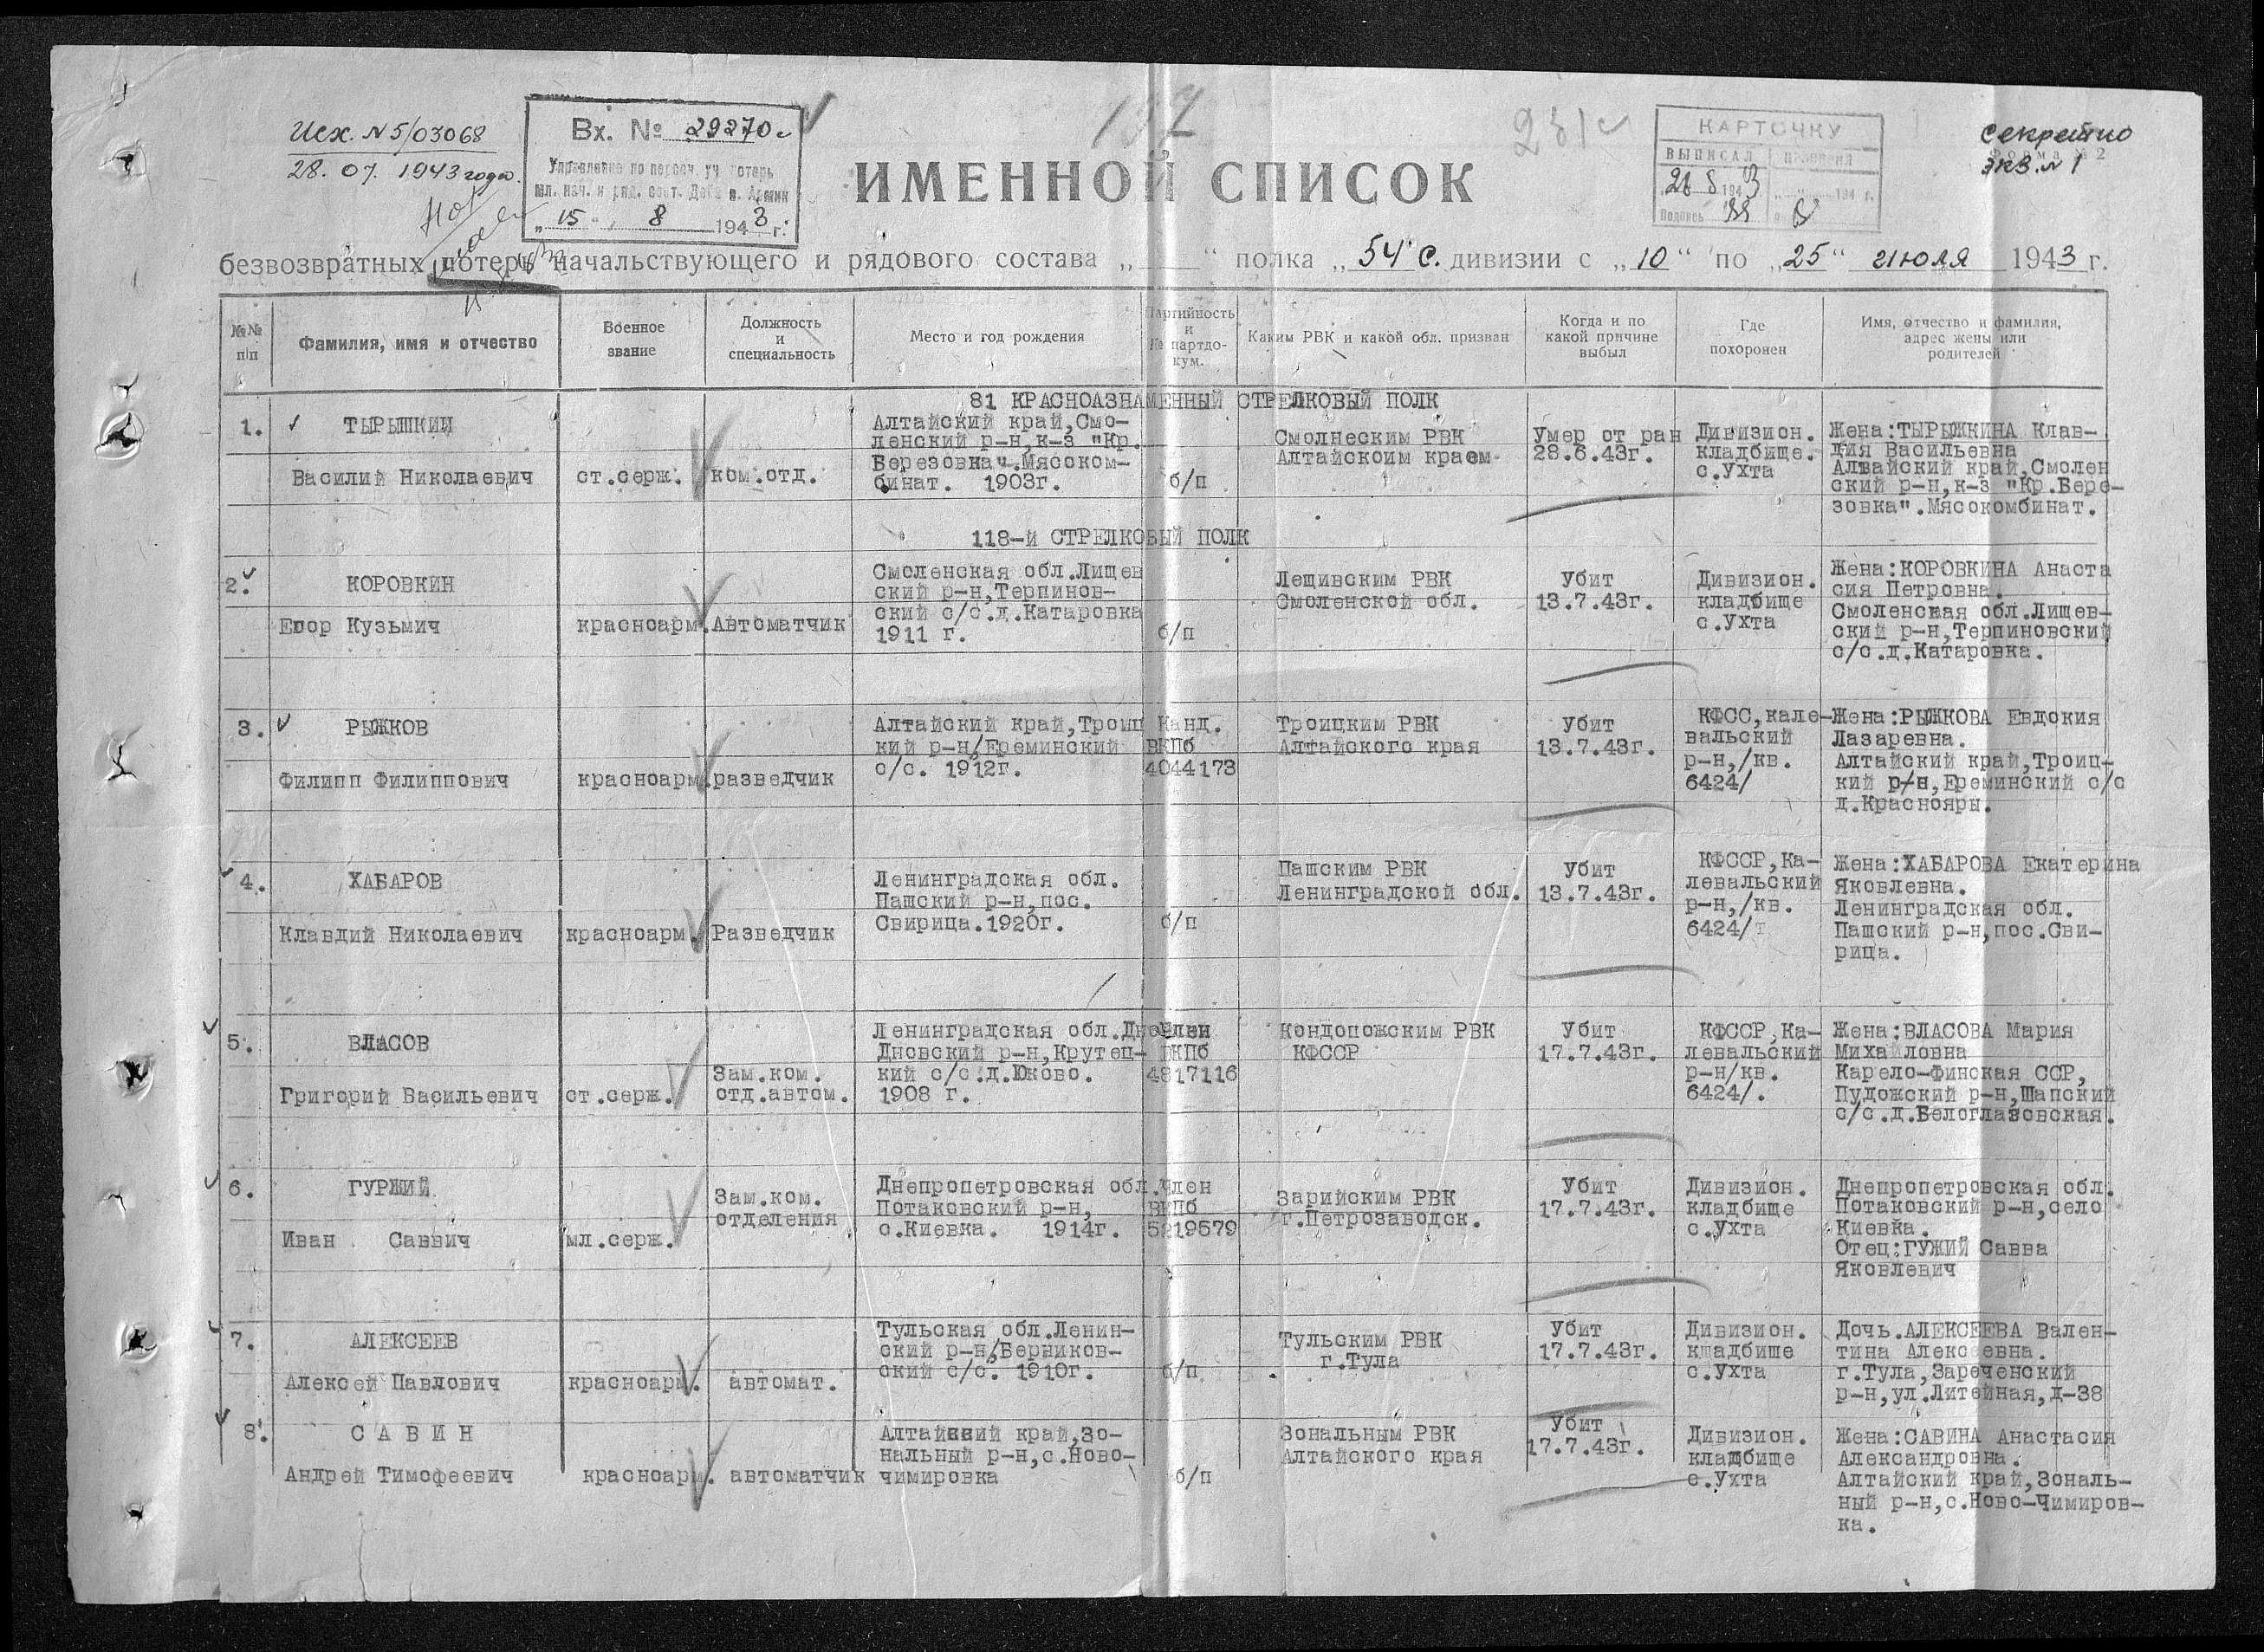 Исх. №5/03068
28.07.1943 года.
Вх. № 29270с
Управление по персон. уч. потерь
мл. нач. и ряд. сост. Де
"15" 8 1943 г.
137
231с
КАРТОЧКУ
ВЫПИСАЛ
26 8 1943
194 г.
Подпись
Секретно
Форма №2
экз. №1
ИМЕННОЙ СПИСОК
безвозвратных потерь начальствующего и рядового состава „ “ полка „54 с. дивизии с „10“ по „25“ июля 1943 г.
№№ п/п
Фамилия, имя и отчество
Военное звание
Должность и специальность
Место и год рождения
Партийность и № партдокум.
Каким РВК и какой обл. призван
Когда и по какой причине выбыл
Где похоронен
Имя, отчество и фамилия, адрес жены или родителей
81 КРАСНОАЗНАМЕННЫЙ СТРЕЛКОВЫЙ ПОЛК
1.
ТЫРЫШКИН
Василий Николаевич
ст.серж.
ком.отд.
Алтайский край,Смо-
ленский р-н,к-з "Кр.
Березовка".Мясоком-
бинат. 1903г.
б/п
Смолнеским РВК
Алтайскоим краем
Умер от ран
28.6.43г.
Дивизион.
кладбище.
с.Ухта
Жена:ТЫРЫЖКИНА Клав-
дия Васильевна
Алтайский край,Смолен
ский р-н,к-з "Кр.Бере-
зовка".Мясокомбинат.
118-й СТРЕЛКОВЫЙ ПОЛК
2.
КОРОВКИН
Егор Кузьмич
красноарм.
Автоматчик
Смоленская обл.Лищев
ский р-н,Терпинов-
ский с/с.д.Катаровка
1911 г.
б/п
Лещивским РВК
Смоленской обл.
Убит
13.7.43г.
Дивизион.
кладбище
с.Ухта
Жена:КОРОВКИНА Анаста
сия Петровна.
Смоленская обл.Лищев-
ский р-н,Терпиновский
с/с.д.Катаровка.
3.
РЫЖКОВ
Филипп Филиппович
красноарм.
разведчик
Алтайский край,Троиц
кий р-н,Ереминский
с/с. 1912г.
Канд.
ВКПб
4044173
Троицким РВК
Алтайского края
Убит
13.7.43г.
КФСС,кале-
вальский
р-н,/кв.
6424/
Жена:РЫЖКОВА Евдокия
Лазаревна.
Алтайский край,Троиц-
кий р-н,Ереминский с/с
д.Краснояры.
4.
ХАБАРОВ
Клавдий Николаевич
красноарм.
Разведчик
Ленинградская обл.
Пашский р-н,пос.
Свирица.1920г.
б/п
Пашским РВК
Ленинградской обл.
Убит
13.7.43г.
КФССР,Ка-
левальский
р-н,/кв.
6424/
Жена:ХАБАРОВА Екатерина
Яковлевна.
Ленинградская обл.
Пашский р-н,пос.Сви-
рица.
5.
ВЛАСОВ
Григорий Васильевич
ст.серж.
Зам.ком.
отд.автом.
Ленинградская обл.
Дновский р-н,Крутец-
кий с/с.д.Юково.
1908 г.
Член
ВКПб
4817116
Кондопожским РВК
КФССР
Убит
17.7.43г.
КФССР,Ка-
левальский
р-н/кв.
6424/.
Жена:ВЛАСОВА Мария
Михайловна
Карело-Финская ССР,
Пудожский р-н,Шапский
с/с.д.Белоглазовская.
6.
ГУРЖИЙ
Иван Саввич
мл.серж.
Зам.ком.
отделения
Днепропетровская обл.
Потаковский р-н,
с.Киевка. 1914г.
член
ВКПб
5219579
Зарийским РВК
г.Петрозаводск.
Убит
17.7.43г.
Дивизион.
кладбище
с.Ухта
Днепропетровская обл.
Потаковский р-н,село
Киевка.
Отец:ГУЖИЙ Савва
Яковлевич
7.
АЛЕКСЕЕВ
Алексей Павлович
красноарм.
автомат.
Тульская обл.Ленин-
ский р-н,Берников-
ский с/с. 1910г.
б/п
Тульским РВК
г.Тула
Убит
17.7.43г.
Дивизион.
кладбище
с.Ухта
Дочь.АЛЕКСЕЕВА Вален-
тина Алексеевна.
г.Тула,Зареченский
р-н,ул.Литейная,д-38
8.
САВИН
Андрей Тимофеевич
красноарм.
автоматчик
Алтайский край,Зо-
нальный р-н,с.Ново-
чимировка
б/п
Зональным РВК
Алтайского края
Убит
17.7.43г.
Дивизион.
кладбище
с.Ухта
Жена:САВИНА Анастасия
Александровна.
Алтайский край,Зональ-
ный р-н,с.Ново-Чимиров-
ка.